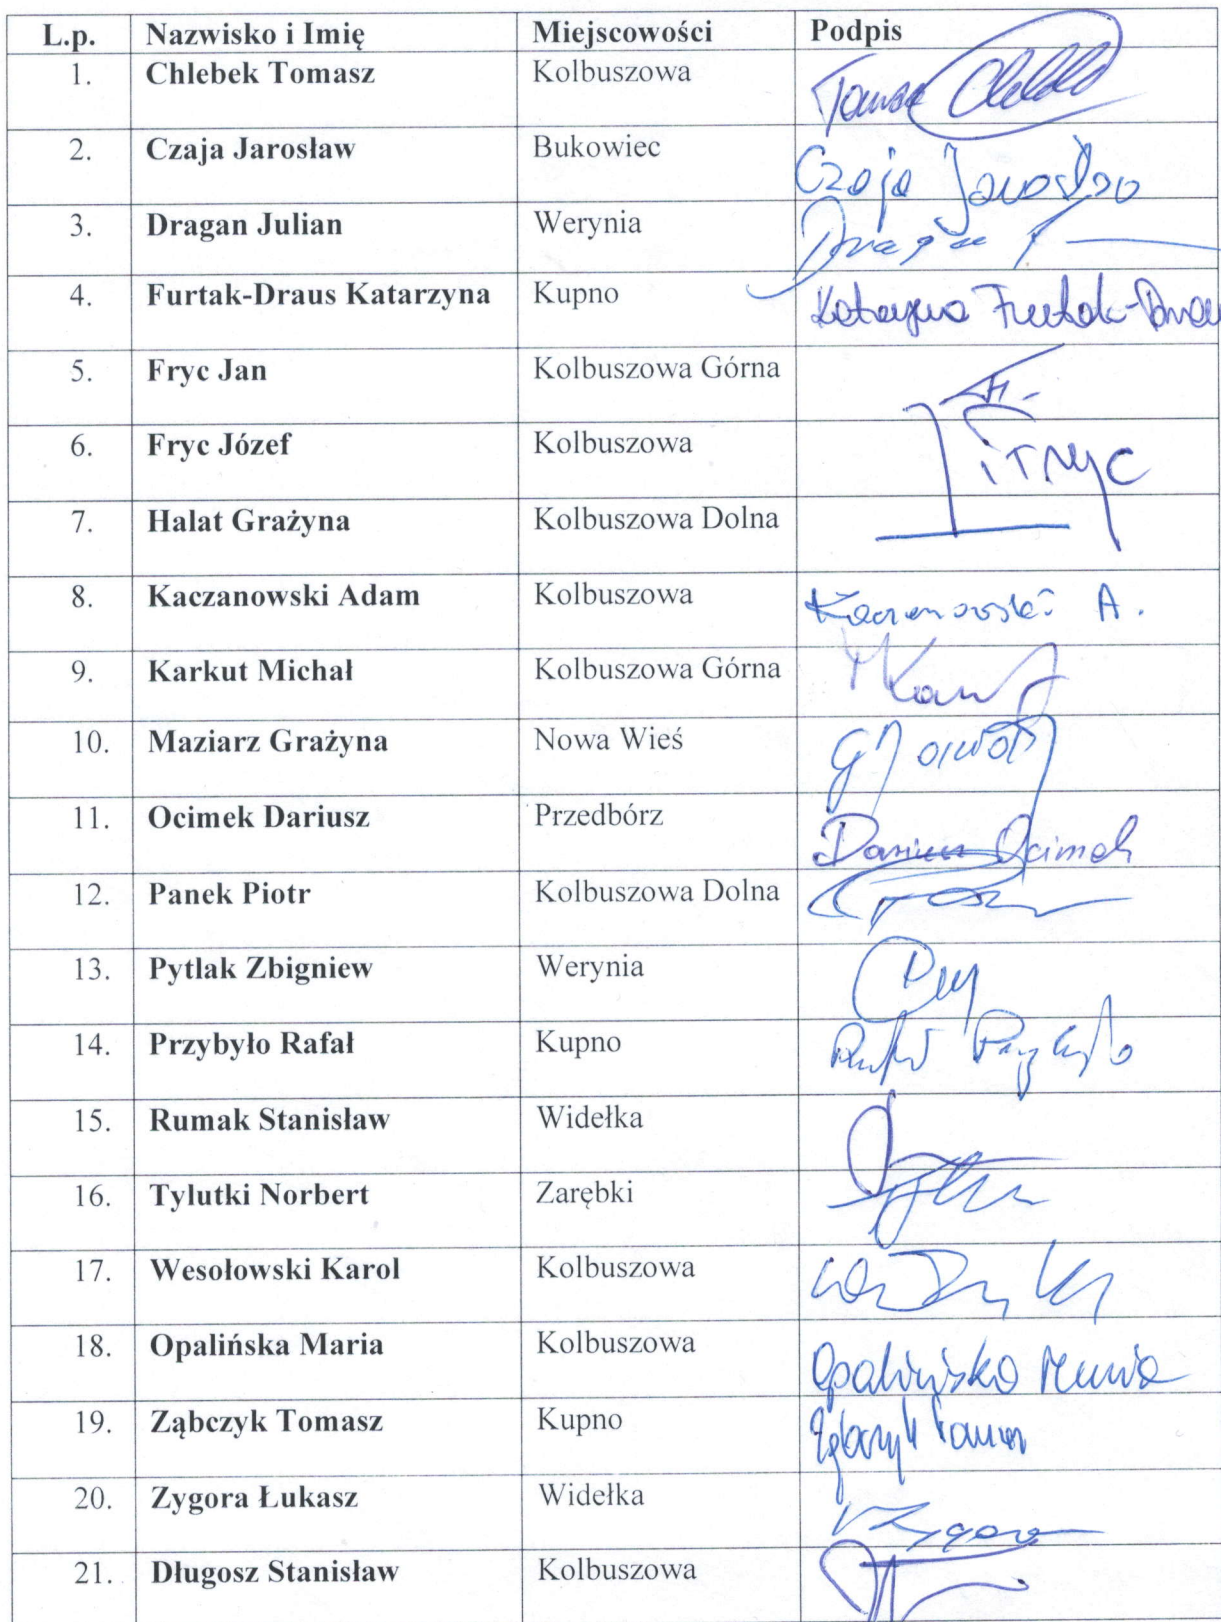 L.p. Nazwisko i Imię Miejscowości Podpis
1. Chlebek Tomasz Kolbuszowa Tomasz
2. Czaja Jarosław Bukowiec Czaja Jarosław
3. Dragan Julian Werynia Dragan
4. Furtak-Draus Katarzyna Kupno Katarzyna Furtak-Draus
5. Fryc Jan Kolbuszowa Górna
6. Fryc Józef Kolbuszowa Fryc
7. Halat Grażyna Kolbuszowa Dolna
8. Kaczanowski Adam Kolbuszowa Kaczanowski A.
9. Karkut Michał Kolbuszowa Górna
10. Maziarz Grażyna Nowa Wieś
11. Ocimek Dariusz Przedbórz Dariusz Ocimek
12. Panek Piotr Kolbuszowa Dolna
13. Pytlak Zbigniew Werynia
14. Przybyło Rafał Kupno Rafał Przybyło
15. Rumak Stanisław Widełka
16. Tylutki Norbert Zarębki
17. Wesołowski Karol Kolbuszowa
18. Opalińska Maria Kolbuszowa Opalińska Maria
19. Ząbczyk Tomasz Kupno Ząbczyk Tomasz
20. Zygora Łukasz Widełka Zygora
21. Długosz Stanisław Kolbuszowa